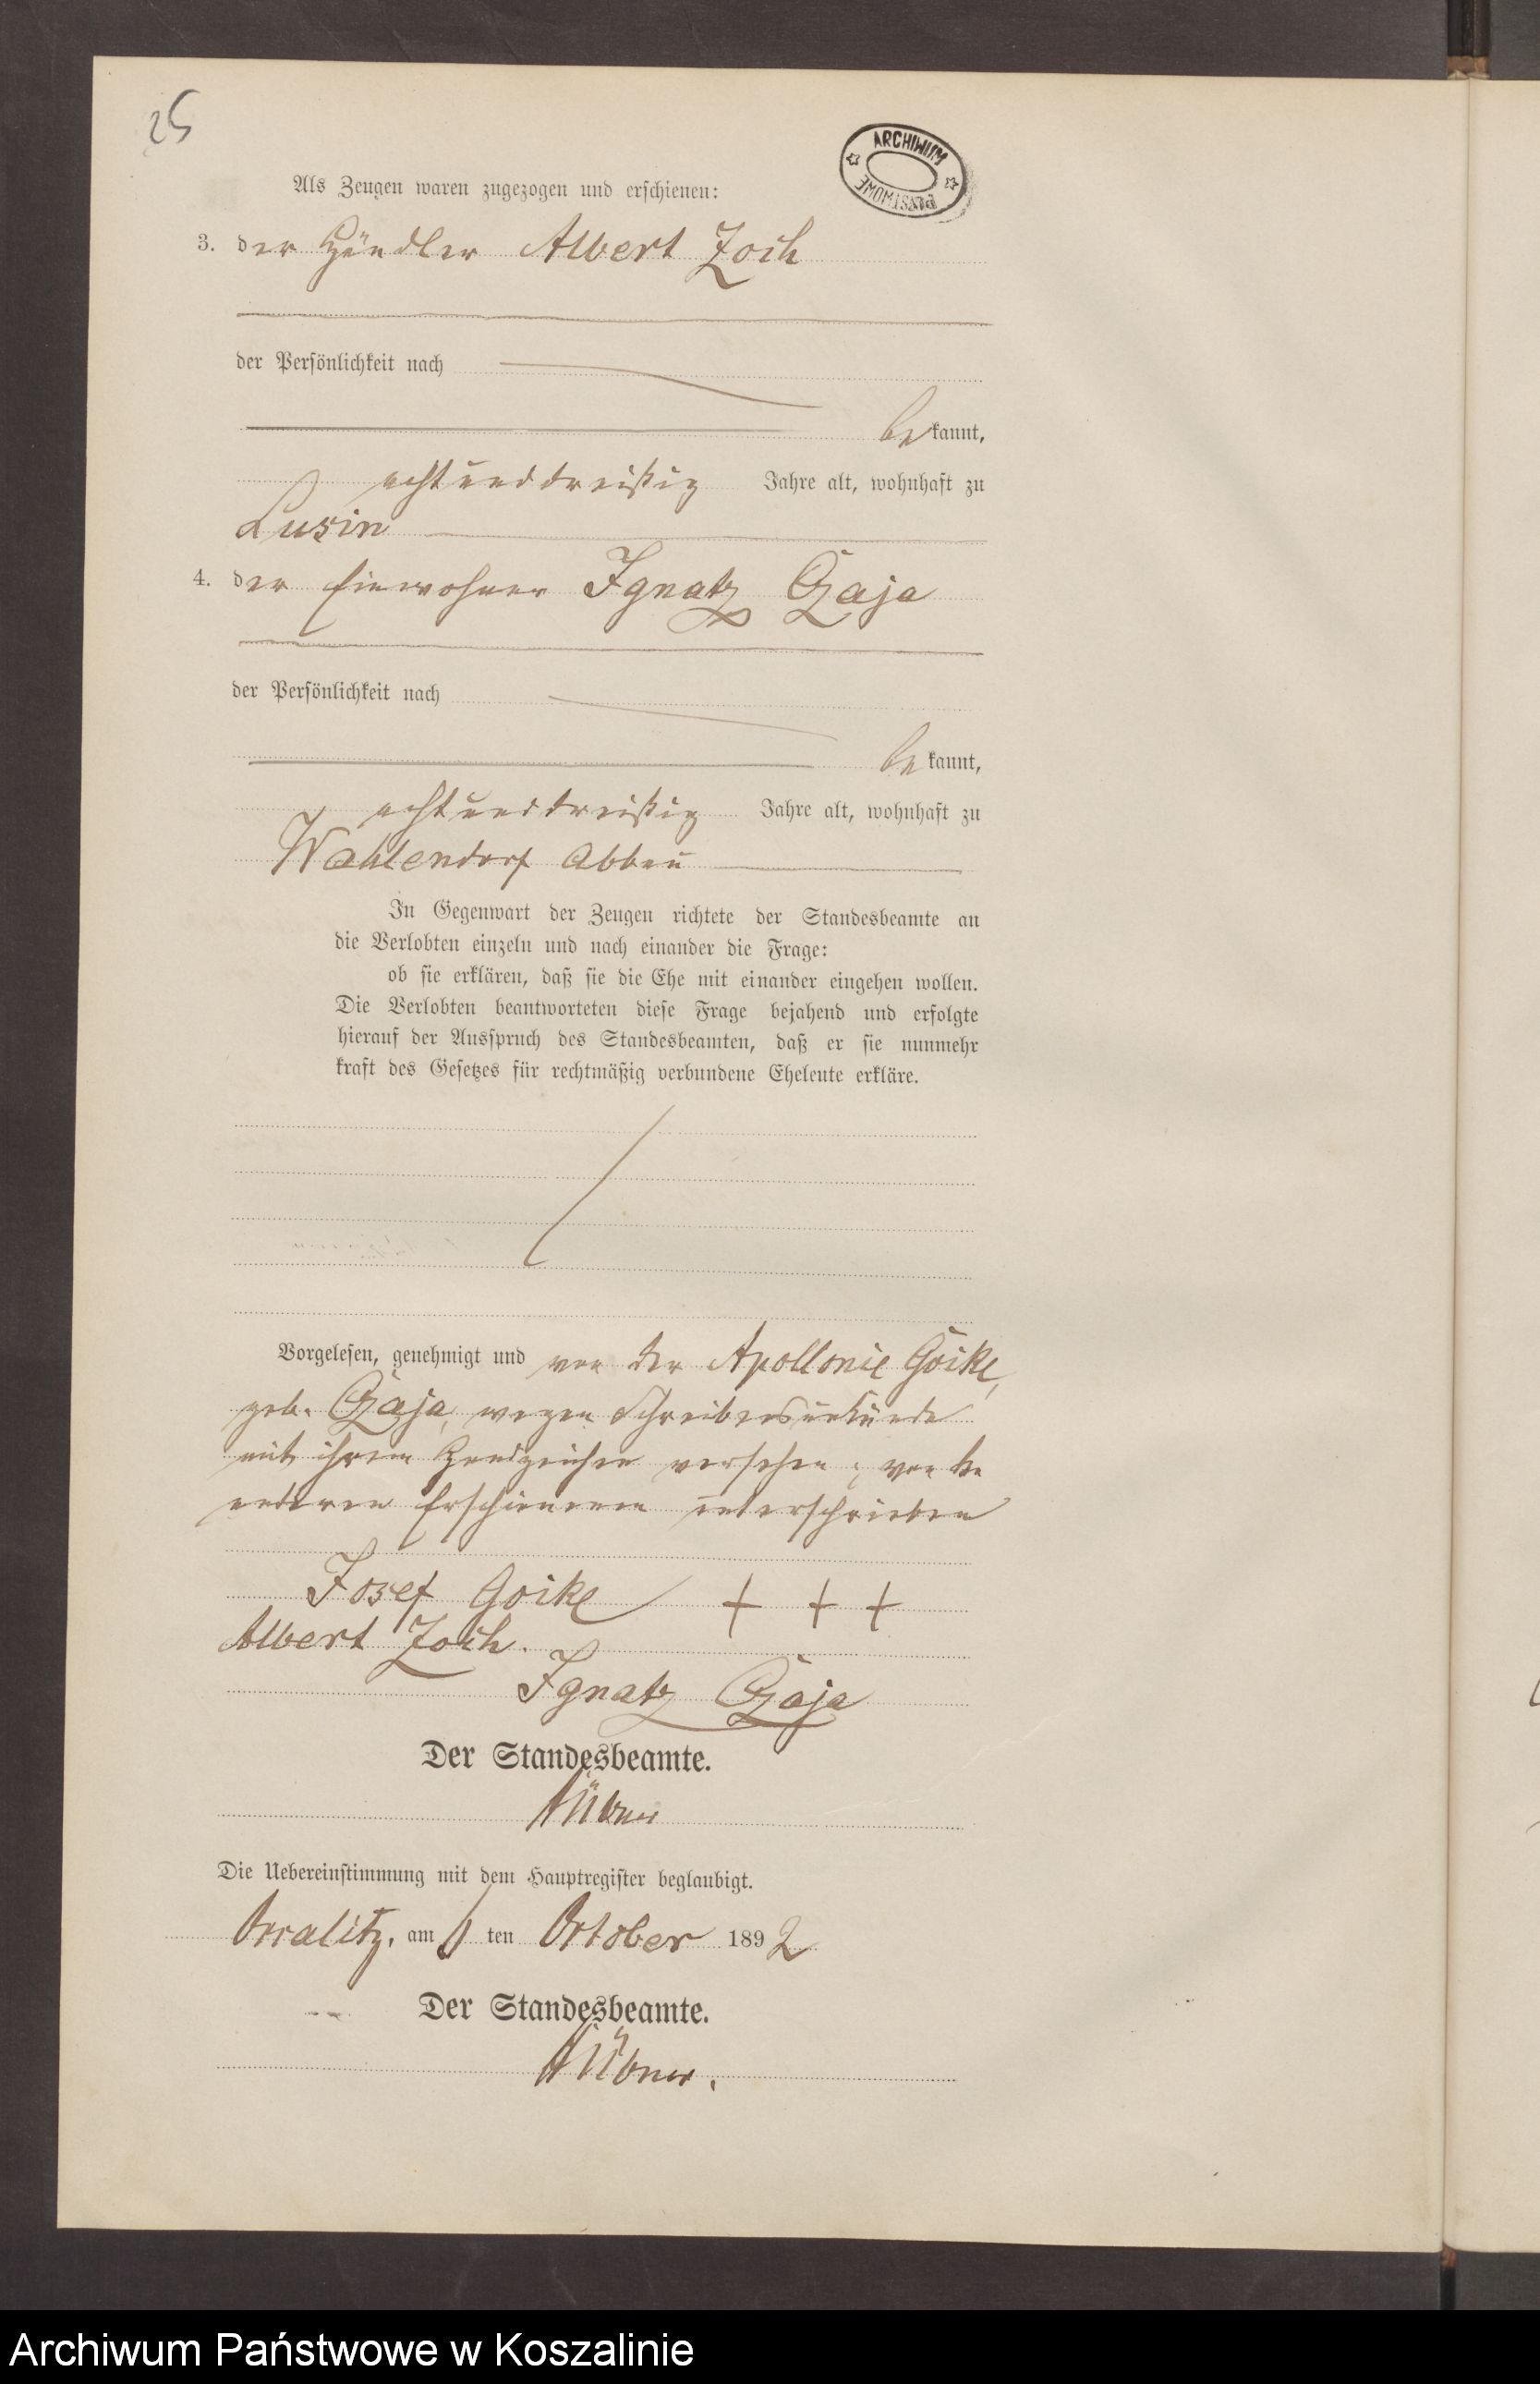 25
ARCHIWUM
PAŃSTWOWE
Als Zeugen waren zugezogen und erschienen:
3. der Händler Albert Zoch
der Persönlichkeit nach
bekannt,
achtunddreißig Jahre alt, wohnhaft zu
Lusin
4. der Einwohner Ignatz Czaja
der Persönlichkeit nach
bekannt,
achtunddreißig Jahre alt, wohnhaft zu
Wahlendorf Abbau
In Gegenwart der Zeugen richtete der Standesbeamte an
die Verlobten einzeln und nach einander die Frage:
ob sie erklären, daß sie die Ehe mit einander eingehen wollen.
Die Verlobten beantworteten diese Frage bejahend und erfolgte
hierauf der Ausspruch des Standesbeamten, daß er sie nunmehr
kraft des Gesetzes für rechtmäßig verbundene Eheleute erkläre.
Vorgelesen, genehmigt und von der Apollonie Goike,
geb. Czaja, wegen Schreibensunkunde
mit ihrem Handzeichen versehen; von den
anderen Erschienenen unterschrieben
Josef Goike + + +
Albert Zoch.
Ignatz Czaja
Der Standesbeamte.
Die Uebereinstimmung mit dem Hauptregister beglaubigt.
am ten October 1892
Der Standesbeamte.
Archiwum Państwowe w Koszalinie